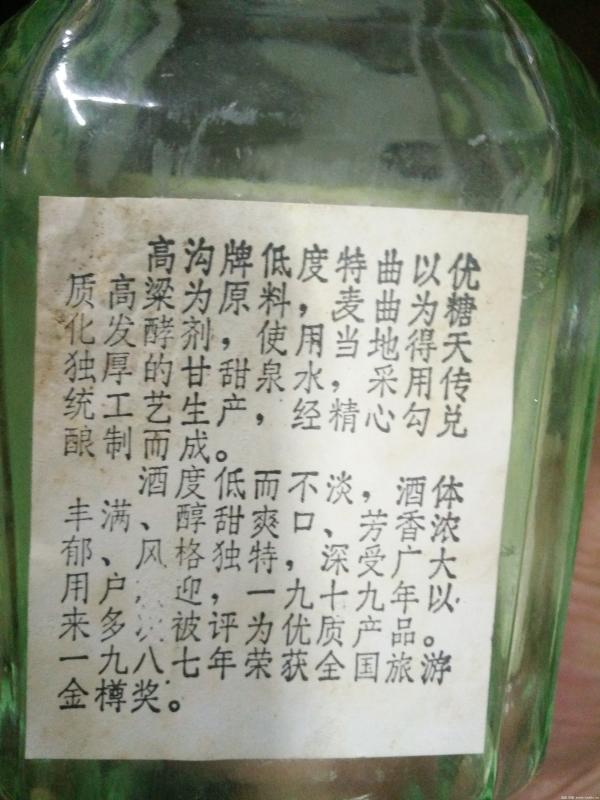 高沟牌低度特曲以优
质高粱为原料,麦曲为糖
化发酵剂,使用当地得天
独厚的甘甜泉水,采用传
统工艺生产,经精心勾兑
酿制而成。
酒度低而不淡,酒体
丰满、醇甜爽口、芳香浓
郁、风格独特,深受广大
用户迎,一九十九年以
来多次被评为优质产品。
一九八七年荣获全国旅游
金樽奖。